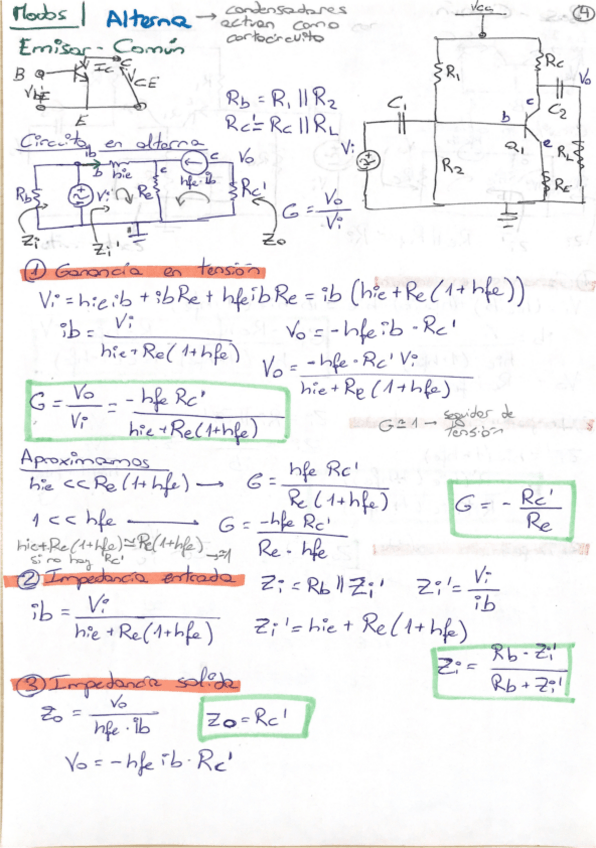 Modos | Alterna → condensadores
actuan como
cortocircuito
4
Emisor-Común
B
Ic
C
VCE
VBE
E
Rb = R1 || R2
Rc' = Rc || RL
VCC
R1
Rc
C1
C2
Vo
b
c
Q1
e
Vi
R2
RL
RE
Circuito en alterna
ib
b
hie
e
c
Vo
Rb
Vi
Re
hfe·ib
Rc'
Zi
Zi'
Zo
G = Vo/Vi
① Ganancia en tensión
Vi = hie ib + ib Re + hfe ib Re = ib (hie + Re (1+hfe))
ib = Vi / hie + Re (1+hfe)
Vo = -hfe ib · Rc'
Vo = -hfe · Rc' Vi / hie + Re (1+hfe)
G = Vo/Vi = -hfe Rc' / hie + Re (1+hfe)
G ≃ 1 → seguidor de
tensión
Aproximamos
hie << Re (1+hfe) → G = hfe Rc' / Re (1+hfe)
G = - Rc'/Re
1 << hfe → G = -hfe Rc' / Re · hfe
hie+Re(1+hfe) ≃ Re(1+hfe) → 1
si no hay Rc'
② Impedancia entrada
Zi = Rb || Zi'
Zi' = Vi/ib
ib = Vi / hie + Re (1+hfe)
Zi' = hie + Re (1+hfe)
Zi = Rb · Zi' / Rb + Zi'
③ Impedancia salida
Zo = Vo / hfe · ib
Zo = Rc'
Vo = -hfe ib · Rc'